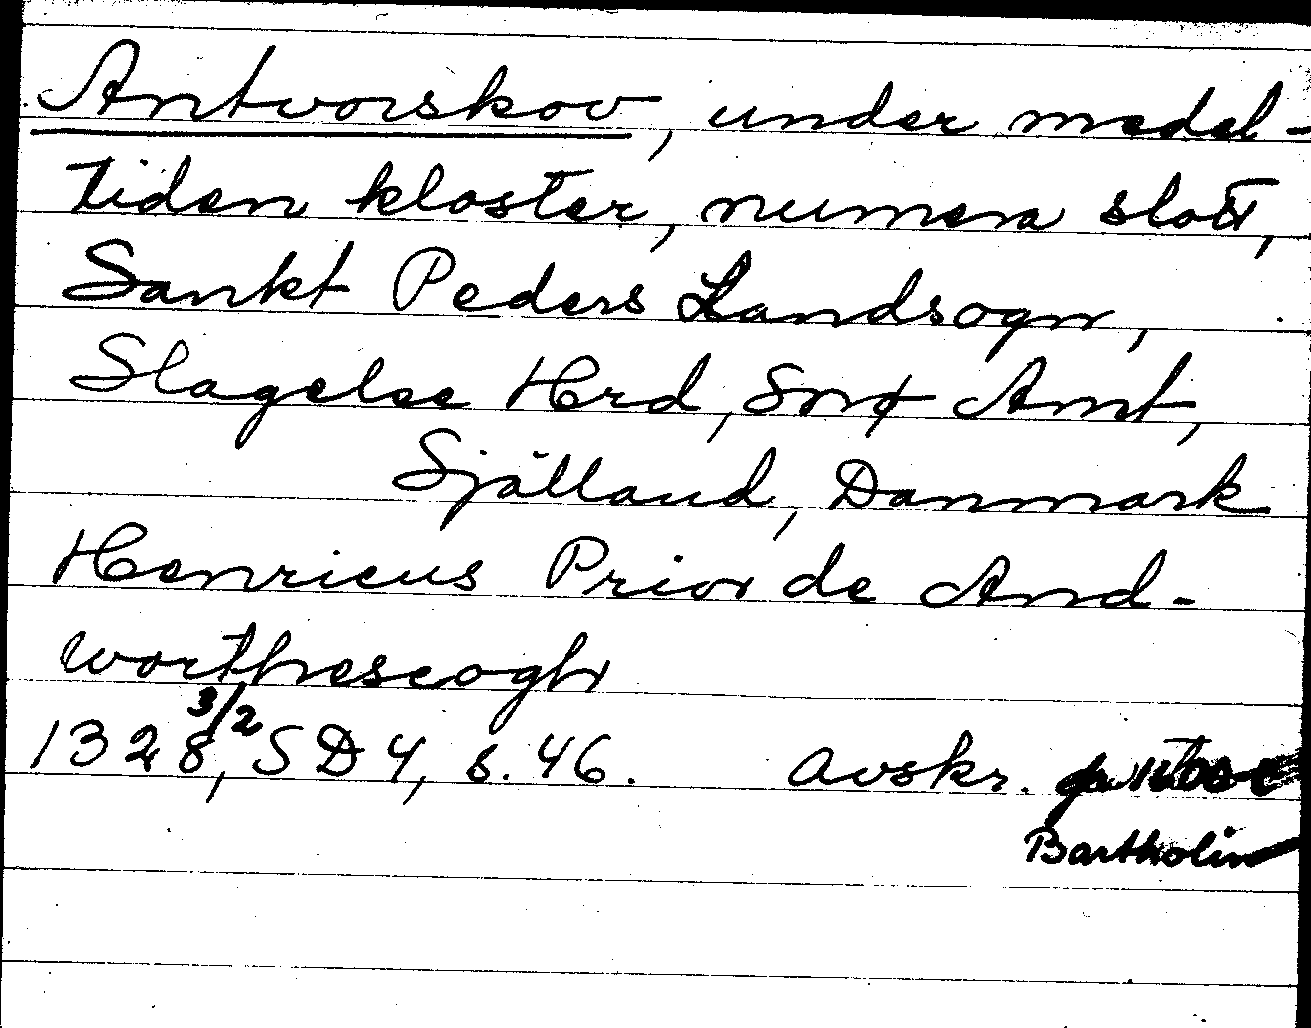 Antvorskov, under medel-
tiden kloster, numera slott,
Sankt Peders Landsogn,
Slagelse Hrd, Sorø Amt,
Själland, Danmark
Henricus Prior de And-
worthrescogh
1328 3/2, SD 4, s. 46. Avskr.
Bartholin